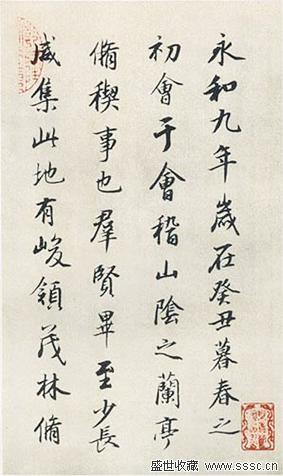 永和九年歲在癸丑暮春之
初會于會稽山陰之蘭亭
脩稧事也羣賢畢至少長
咸集此地有峻領茂林脩
盛世收藏
www.sssc.cn